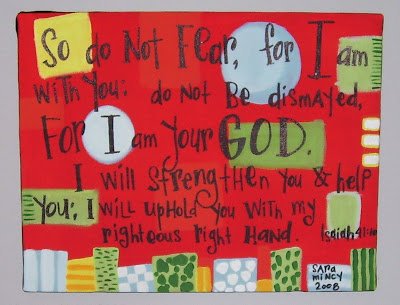 So do Not Fear, for I am
with you; do Not Be dismayed,
For I am your GOD.
I will strengtHen you & help
you; I will upHold you with my
righteous right Hand. Isaiah 41:10
SARA
MINCY
2008